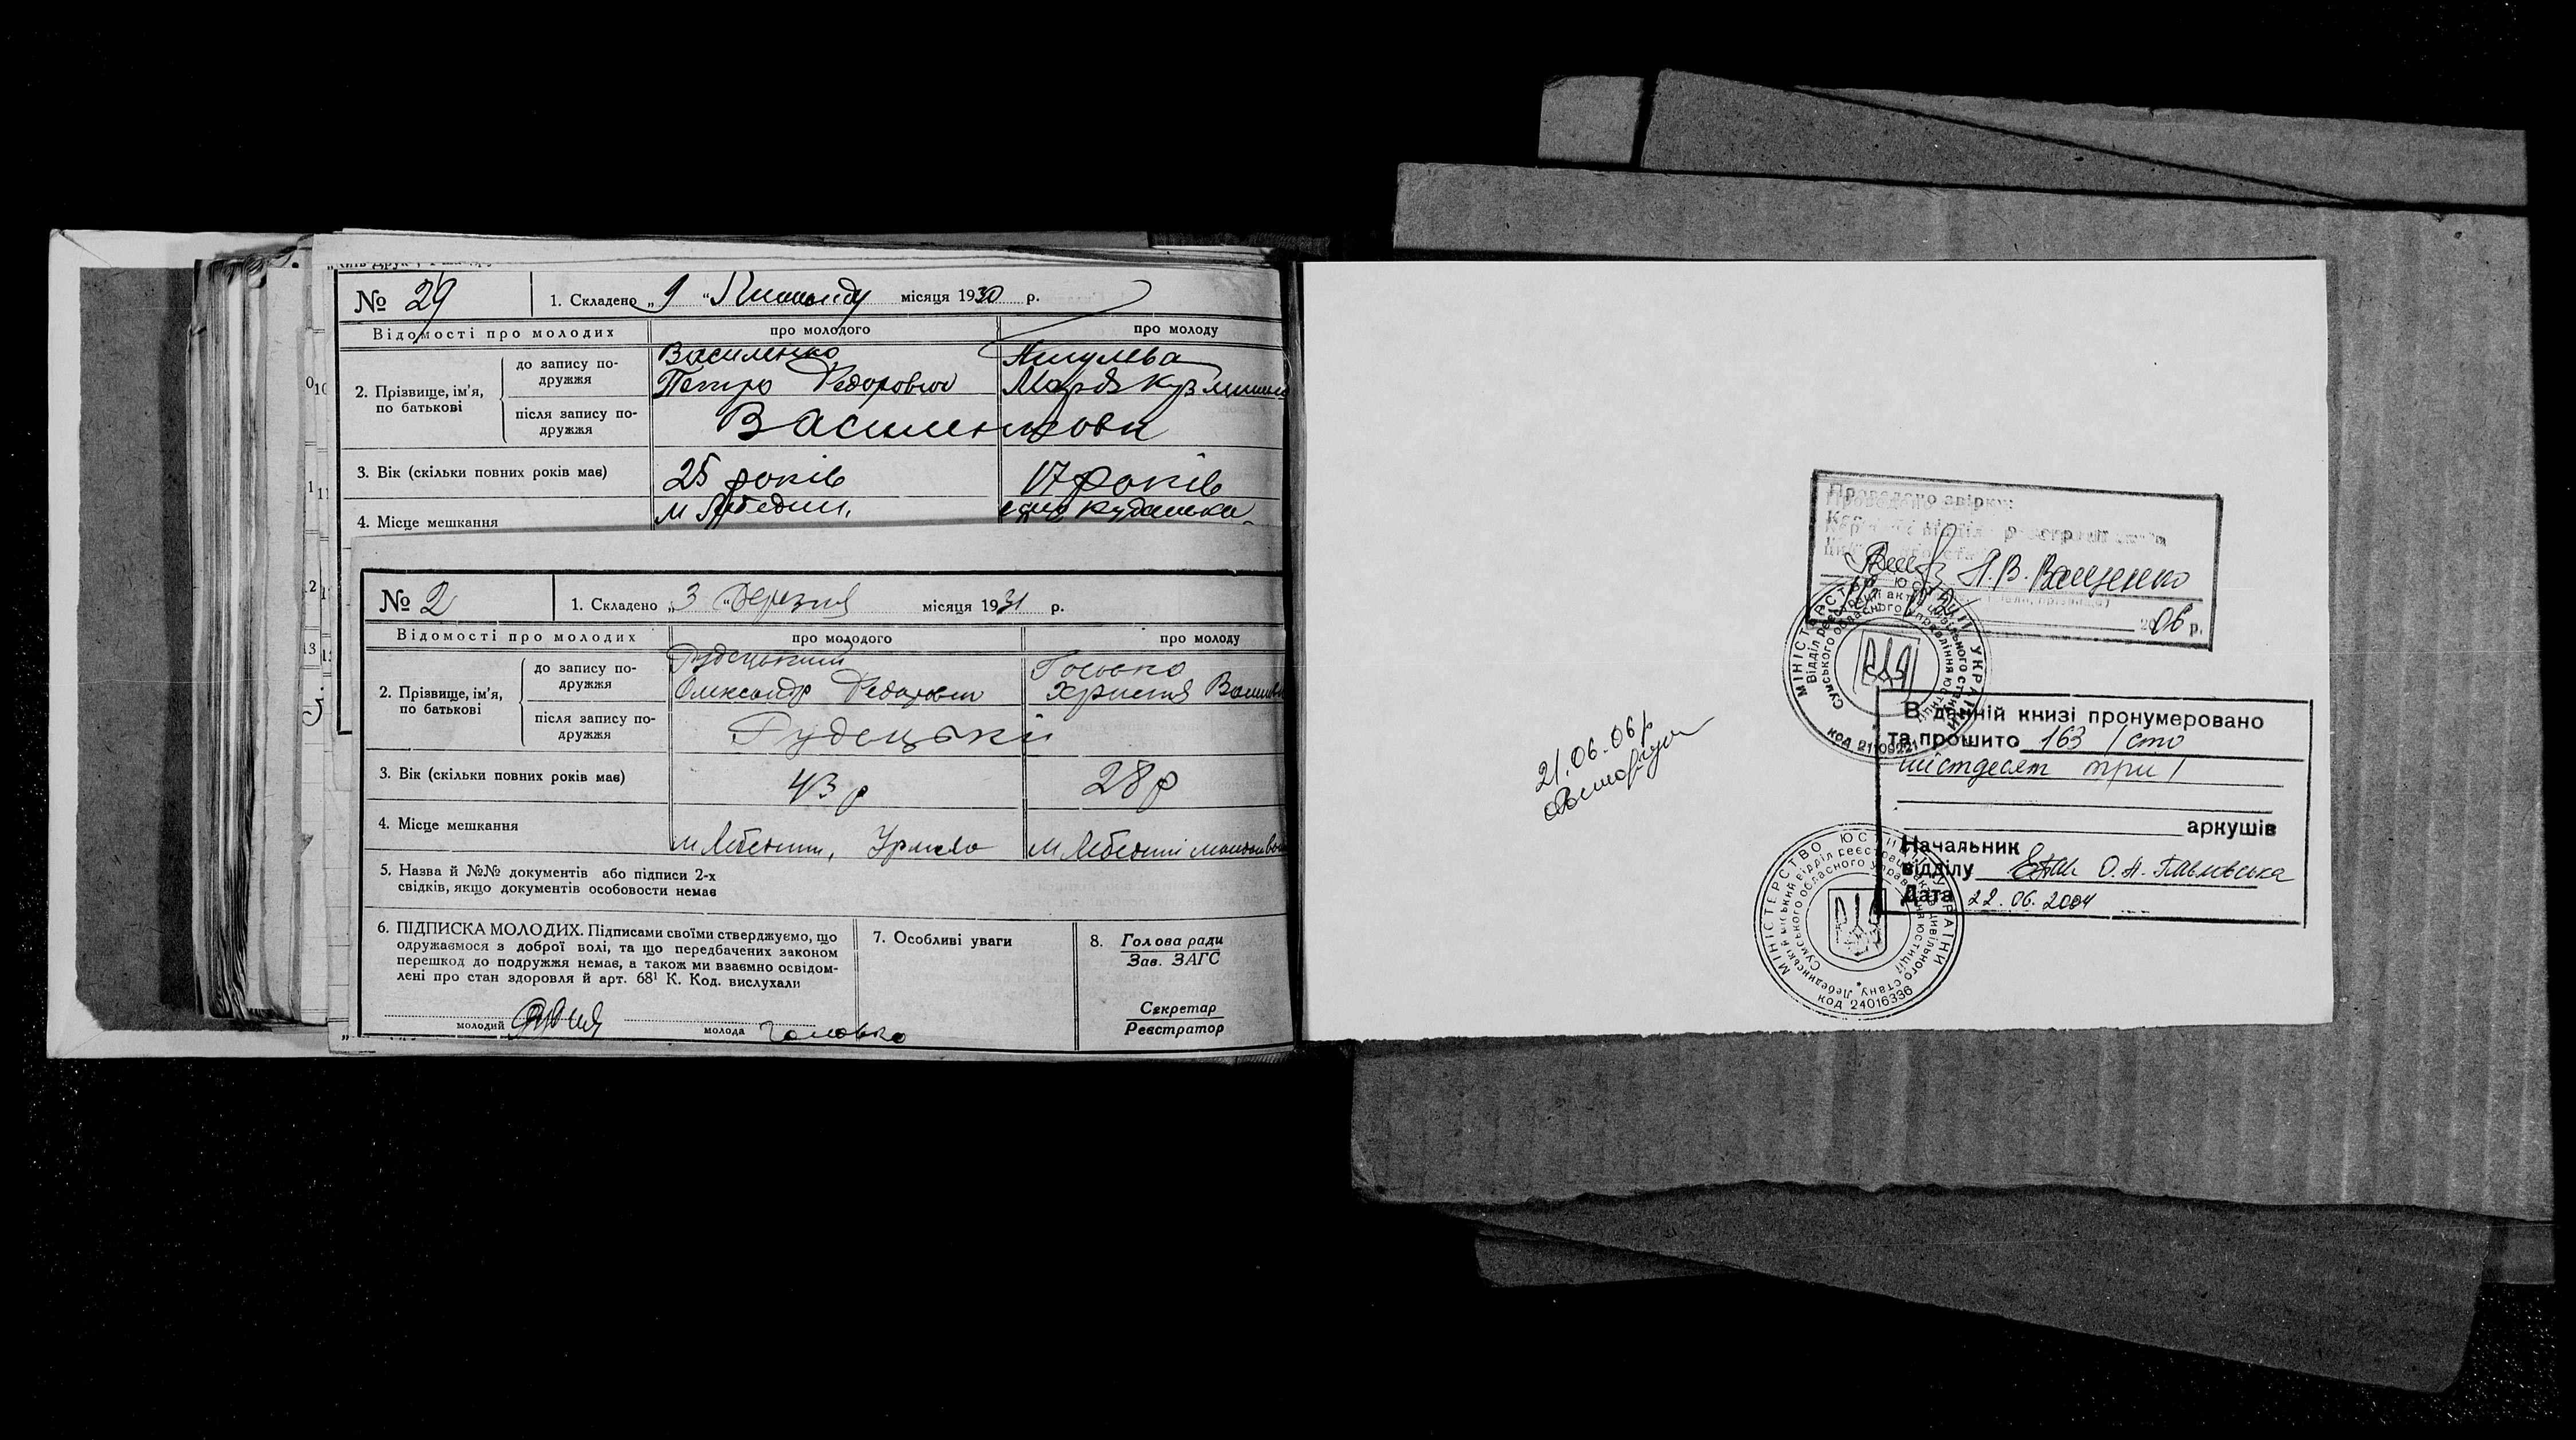 № 29
1. Складено „ 9 " Липня місяця 1930 р.
Відомості про молодих про молодого про молоду
2. Прізвище, ім'я, по батькові
до запису подружжя
Василенко
Петро Федорович
Марія Кузьмин
після запису подружжя
Василенкови
3. Вік (скільки повних років має) 25 років 17 років
4. Місце мешкання м Лебедин,
№ 2
1. Складено „ 3 " Березня місяця 1931 р.
Відомості про молодих про молодого про молоду
2. Прізвище, ім'я, по батькові
до запису подружжя
Рудецький
Олександр Федорович Христя
після запису подружжя
Рудецьки
3. Вік (скільки повних років має) 43 р 28 р
4. Місце мешкання м Лебедин, м Лебедин
5. Назва й №№ документів або підписи 2-х
свідків, якщо документів особовости немає
6. ПІДПИСКА МОЛОДИХ. Підписами своїми стверджуємо, що
одружаємося з доброї волі, та що передбачених законом
перешкод до подружжя немає, а також ми взаємно освідом-
лені про стан здоровля й арт. 68¹ К. Код. вислухали
молодий молода Головко
7. Особливі уваги
8. Голова ради
Зав. ЗАГС
Секретар
Реєстратор
21.06.06р
Проведено звірку:
2006 р.
МІНІСТЕРСТВО ЮСТИЦІЇ УКРАЇНИ
код 21109221
В данній книзі пронумеровано
та прошито 163 / сто
шістдесят три /
аркушів
Начальник
відділу О. А. Павловська
Дата 22.06.2004
МІНІСТЕРСТВО ЮСТИЦІЇ УКРАЇНИ
код 24016336